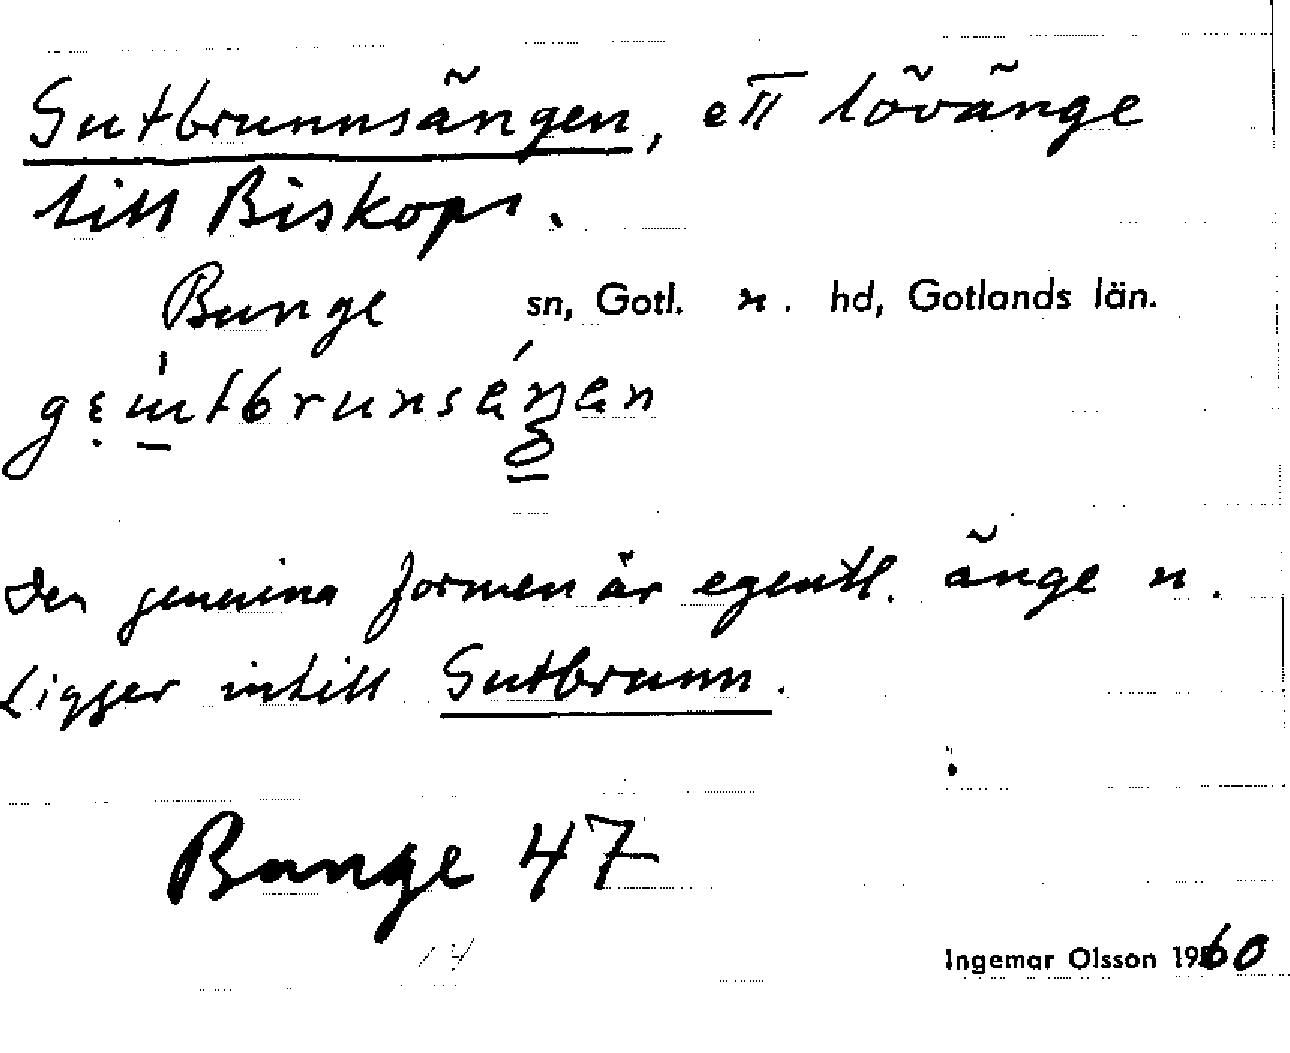 Gutbrunnsängen, ett lövänge
till Biskops.
Bunge sn, Gotl. n. hd, Gotlands län.
Den genuina formen är egentl. änge n.
Ligger intill Gutbrunn.
Bunge 47
14
Ingemar Olsson 1960